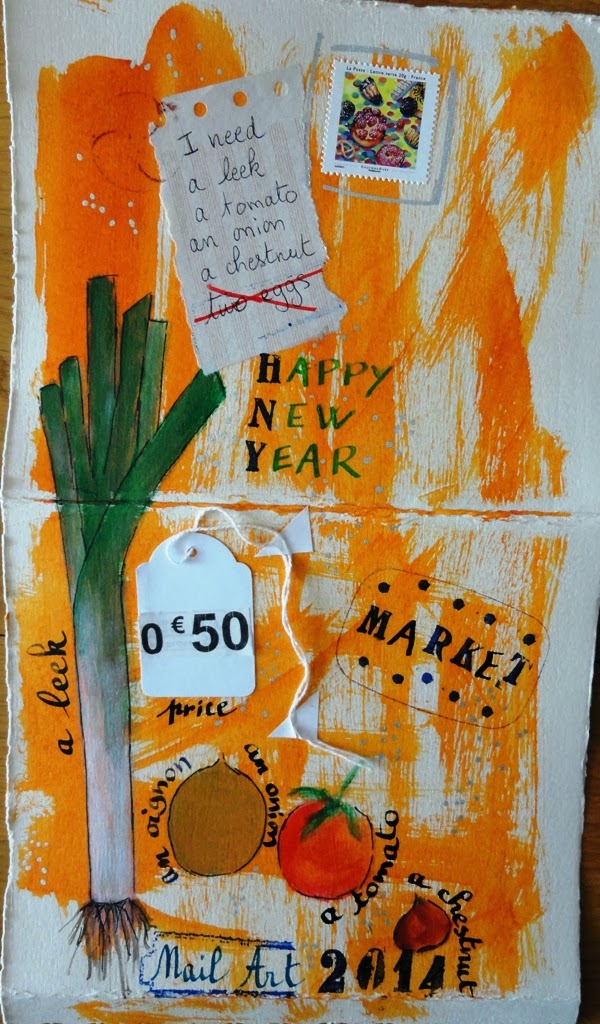 La Poste - Lettre verte 20g - France
I need
a leek
a tomato
an onion
a chestnut
two eggs
HAPPY
NEW
YEAR
0 € 50
price
MARKET
a leek
an oignon
an onion
a tomato
a chestnut
Mail Art 2014